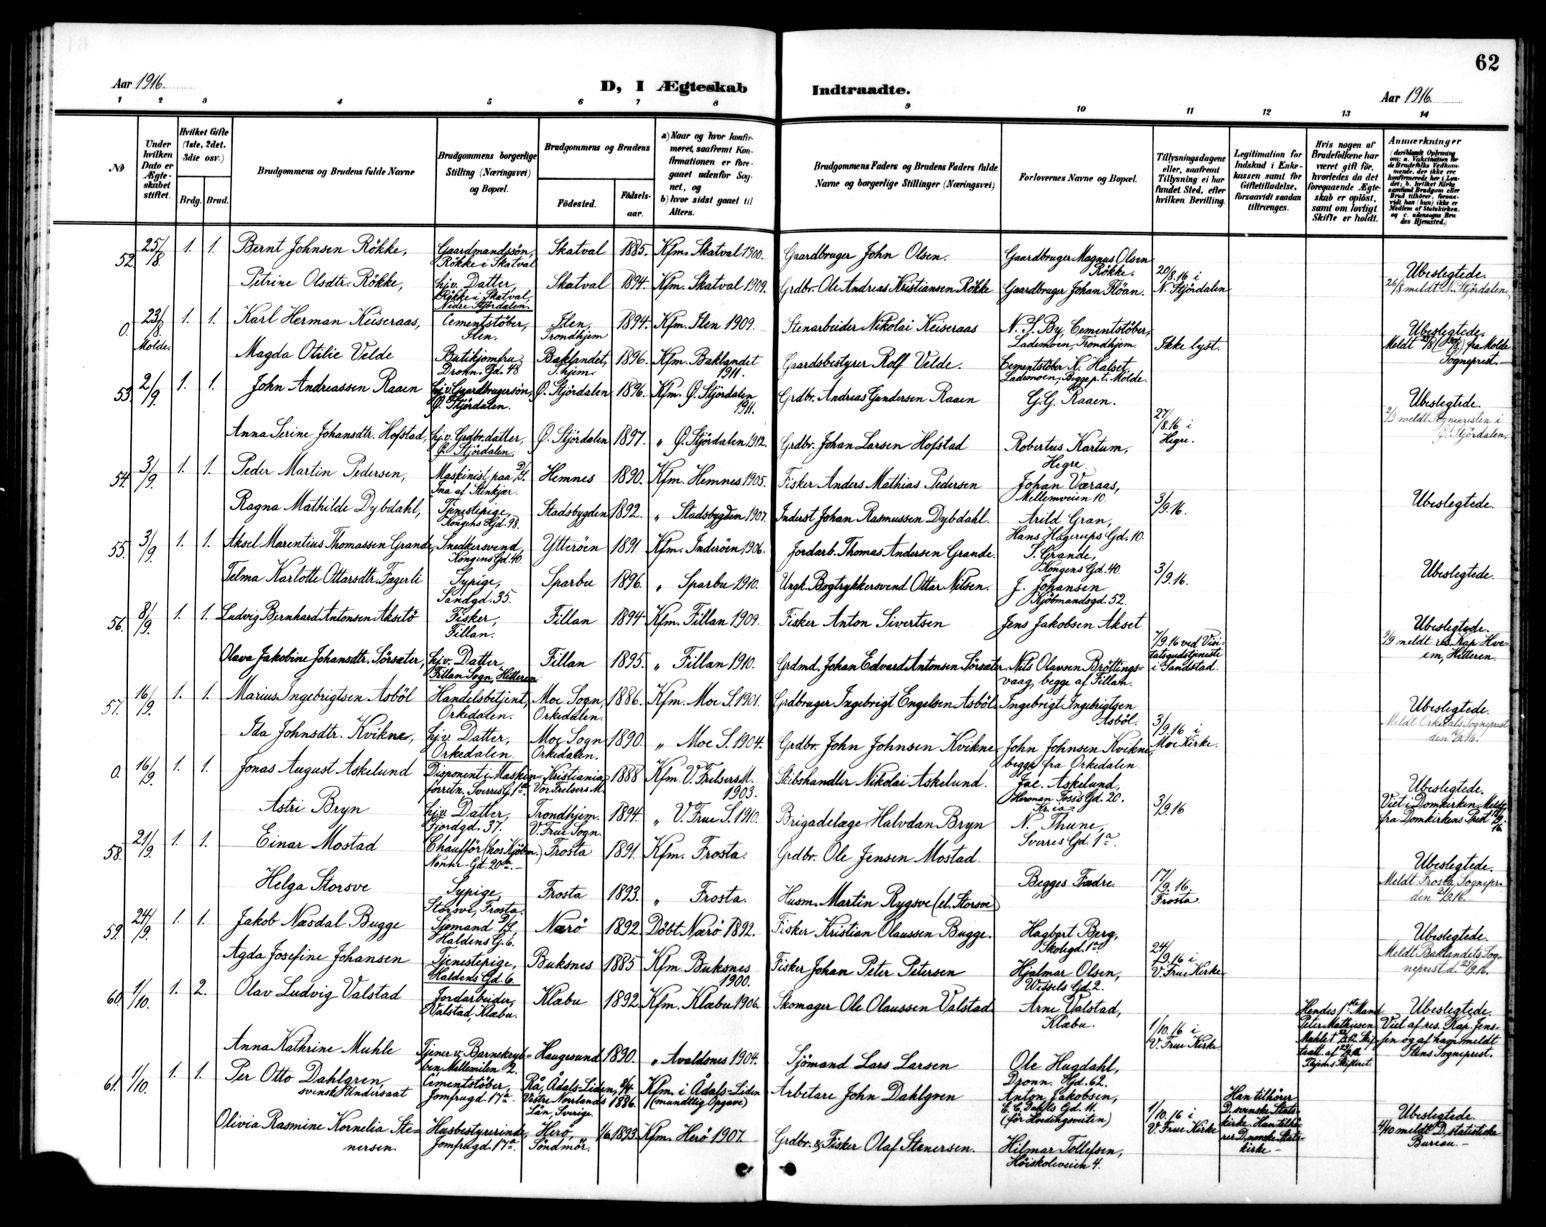 62
Aar 1916.
D, I Ægteskab
Indtraadte.
Aar 1916.
1 2 3 4 5 6 7 8 9 10 11 12 13 14
No
Under hvilken Dato er Ægteskabet stiftet.
Hvilket Gifte (1ste, 2det, 3die osv.)
Brdg. Brud.
Brudgommens og Brudens fulde Navne
Brudgommens borgerlige Stilling (Næringsvei) og Bopæl.
Brudgommens og Brudens
Fødested.
Fødselsaar.
a) Naar og hvor konfirmeret, saafremt Konfirmationen er foregaaet udenfor Sognet, og
b) hvor sidst gaaet til Alters.
Brudgommens Faders og Brudens Faders fulde Navne og borgerlige Stillinger (Næringsvei)
Forlovernes Navne og Bopæl.
Tillysningsdagene eller, saafremt Tillysning ei har fundet Sted, efter hvilken Bevilling.
Legitimation for Indskud i Enkekassen samt for Giftetilladelse, forsaavidt saadan tiltrænges.
Hvis nogen af Brudefolkene har været gift før, hvorledes da det foregaaende Ægteskab er opløst, samt om lovligt Skifte er holdt.
Anmærkninger
52. 25/8. 1. 1. Bernt Johnsen Rökke, Gaardmandssön, Rökke i Skatval Skatval 1885. Kfm. Skatval 1900. Gaardbruger John Olsen. Gaardbruger Magnus Olsen Rökke.
Petrine Olsdtr. Rökke, hjv. Datter, Rökke i Skatval, Nedre Stjördalen. Skatval 1894. Kfm. Skatval 1909. Grdbr. Ole Andreas Kristiansen Rökke Gaardbruger Johan Flöan. 20/8.16 i N. Stjördalen Ubeslegtede. 26/8 meldt N. Stjördalen,
0. 23/8. Molde. 1. 1. Karl Herman Keiseraas, Cementstöber, Ilen. Ilen, Trondhjem 1894. Kfm. Ilen 1909. Stenarbeider Nikolai Keiseraas N. J. By, Cementstöber, Lademoen, Trondhjem. Ikke lyst. Ubeslegtede.
Magda Otilie Velde Butikjomfru, Dronn. Gd. 48 Baklandet, T.hjem. 1896. Kfm. Baklandet 1911. Gaardsbestyrer Rolf Velde. Cementstöber K. Halset, Lademoen, Begge p.t. Molde. fra Molde Sogneprest.
53. 2/9. 1. 1. John Andreassen Raaen hjv. Gaardbrugersön, Ö. Stjördalen. Ö. Stjördalen. 1896. Kfm. Ö. Stjördalen 1911. Grdbr. Andreas Gundersen Raaen G. G. Raaen. 27/8.16 i Hegre. Ubeslegtede
Anna Serine Johansdtr. Hofstad, hjv. Grdbr.datter, Ö. Stjördalen. Ö. Stjördalen 1897. " Ö. Stjördalen 1912. Grdbr. Johan Larsen Hofstad Robertus Kartum, Hegre. 2/9 meldt Sognepresten i Ö. Stjördalen.
54. 3/9. 1. 1. Peder Martin Pedersen, Maskinist paa D/S. Ina af Stenkjær. Hemnes 1890. Kfm. Hemnes 1905. Fisker Anders Mathias Pedersen Johan Væraas, Mellemveien 10.
Ragna Mathilde Dybdahl, Tjenestepige, Kongens Gd. 98. Stadsbygden 1892. " Stadsbygden 1907. Inderst Johan Rasmussen Dybdahl. Arild Gran, Hans Hagerups Gd. 10. 3/9.16. Ubeslegtede.
55. 3/9. 1. 1. Aksel Marentius Thomassen Grande, Snedkersvend, Kongens Gd. 40. Ytteröen 1891 Kfm. Inderöen, 1906. Jordarb. Thomas Andersen Grande. S. Grande, Kongens Gd. 40
Telma Karlotte Ottarsdtr. Fagerli Sypige, Sandgd. 35. Sparbu 1896. " Sparbu 1910. Ungk. Bogtrykkersvend Ottar Nilsen. J. Johansen Kjöbmandsgd. 52. 3/9.16. Ubeslegtede.
56. 8/9. 1. 1. Ludvig Bernhard Antonsen Aksetö Fisker, Fillan. Fillan 1894. Kfm. Fillan 1909. Fisker Anton Sivertsen Jens Jakobsen Akset Ubeslegtede.
Olava Jakobine Johansdtr. Sörsæter, hjv. Datter, Fillan Sogn, Hitteren Fillan 1895. " Fillan 1910. Grdmd. Johan Edvard Antonsen Sörsæter Nils Olavsen Bröttingsvaag, begge af Fillan. 7/9.16 ved Visitatsgudstjeneste i Sandstad. 9/9 meldt res. Kap. Hitteren.
57. 16/9. 1. 1. Marius Ingebrigtsen Asböl Handelsbetjent, Orkedalen. Moe Sogn, Orkedalen. 1886. Kfm. Moe S. 1901. Grdbruger Ingebrigt Engelsen Asböl Ingebrigt Ingebrigtsen Asböl. Ubeslegtede.
Ida Johnsdtr. Kvikne, hjv. Datter, Orkedalen Moe Sogn Orkedalen. 1890. " Moe S. 1904. Grdbr. John Johnsen Kvikne John Johnsen Kvikne begge fra Orkedalen. 3/9.16 i Moe Kirke. Meldt Orkedals Sogneprest
0. 16/9. 1. 1. Jonas August Askelund Disponent i Maskinforretn. Sverres G. 1a Kristiania, Vor Frelsers M. 1888 Kfm. V. Frelsers M. 1903. Skibshandler Nikolai Askelund. Jac. Askelund, Herman Foss's Gd. 20. Kr.ia Ubeslegtede.
Astri Bryn hjv. Datter, Fjordgd. 37. Trondhjem. V. Frue Sogn. 1894. " V. Frue S. 1910. Brigadelæge Halvdan Bryn N. Thune, Sverres Gd. 1a. 3/9.16 Viet i Domkirken. Meldt fra Domkirkens Prest
58. 21/9. 1. 1. Einar Mostad Chaufför (hos Kjöbm.) Nonne-Gd. 20 Frosta 1891. Kfm. Frosta. Grdbr. Ole Jensen Mostad. Ubeslegtede.
Helga Storsve Sypige, Storsve, Frosta. Frosta 1893. " Frosta. Husm. Martin Rygsve (el. Storsve) Begges Fædre. 17/9.16. Frosta Meldt Frosta Sognepr. den 21/9.16.
59. 24/9. 1. 1. Jakob Næsdal Bugge Sjömand Haldens G. 6. Nærö 1892 Döbt Nærö 1892. Fisker Kristian Olaussen Bugge. Hagbart Berg, Skolegd. 1a. Ubeslegtede.
Agda Josefine Johansen Tjenestepige, Haldens Gd. 6. Buksnes 1885 Kfm. Buksnes 1900. Fisker Johan Peter Petersen Hjalmar Olsen, Wessels Gd. 2. 24/9.16 i V. Frue Kirke Meldt Baklandets Sogneprest d. 25/9.16.
60. 1/10. 1. 2. Olav Ludvig Valstad Jordarbeider, Valstad, Klæbu. Klæbu 1892. Kfm. Klæbu 1906. Skomager Ole Olaussen Valstad Arne Valstad, Klæbu. Hendes 1ste Mand Peter Mathisen Ubeslegtede. Viet af res. Kap. Jenssen og af ham meldt Ilens Sogneprest.
Anna Kathrine Muhle Tjener v. Barnekrybben Mellemilen 2. Haugesund 1890. " Avaldsnes 1904. Sjömand Lars Larsen Ole Hugdahl, Dronn. Gd. 62. 1/10.16 i V. Frue Kirke
61. 1/10. 1. 1. Per Otto Dahlgren, svensk Undersaat Cementstöber, Jomfrugd. 17a. Rå, Ådals-Liden, Vestre Norrlands Län, Sverige. 2/4 1886. Kfm. i Ådals-Liden (mundtlig Opgave) Arbetare John Dahlgren Anton Jakobsen, E. C. Dahls Gd. 11. Han tilhörer D. svenske Statskirke. Hun tilhörer D. norske Statskirke.
Olivia Rasmine Kornelia Stenersen. Husbestyrerinde, Jomfrugd. 17a. Herö, Söndmör. 1/6 1893. Kfm. Herö 1907. Grdbr. & Fisker Olaf Stenersen. Hilmar Tollefsen, Höiskoleveien 4. 1/10.16 i V. Frue Kirke Ubeslegtede. 4/10 meldt D. statistiske Bureau.